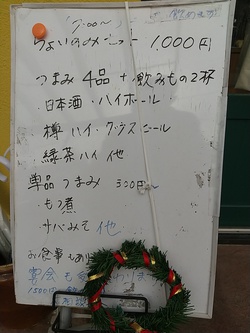 (17:00〜)
ちょいのみセット 1,000円
つまみ 4品 + 飲みもの2杯
・日本酒・ハイボール
・樽ハイ・グラスビール
・緑茶ハイ 他
単品つまみ 300円〜
・もつ煮
・サバみそ 他
お食事もあり
宴会も
1500円